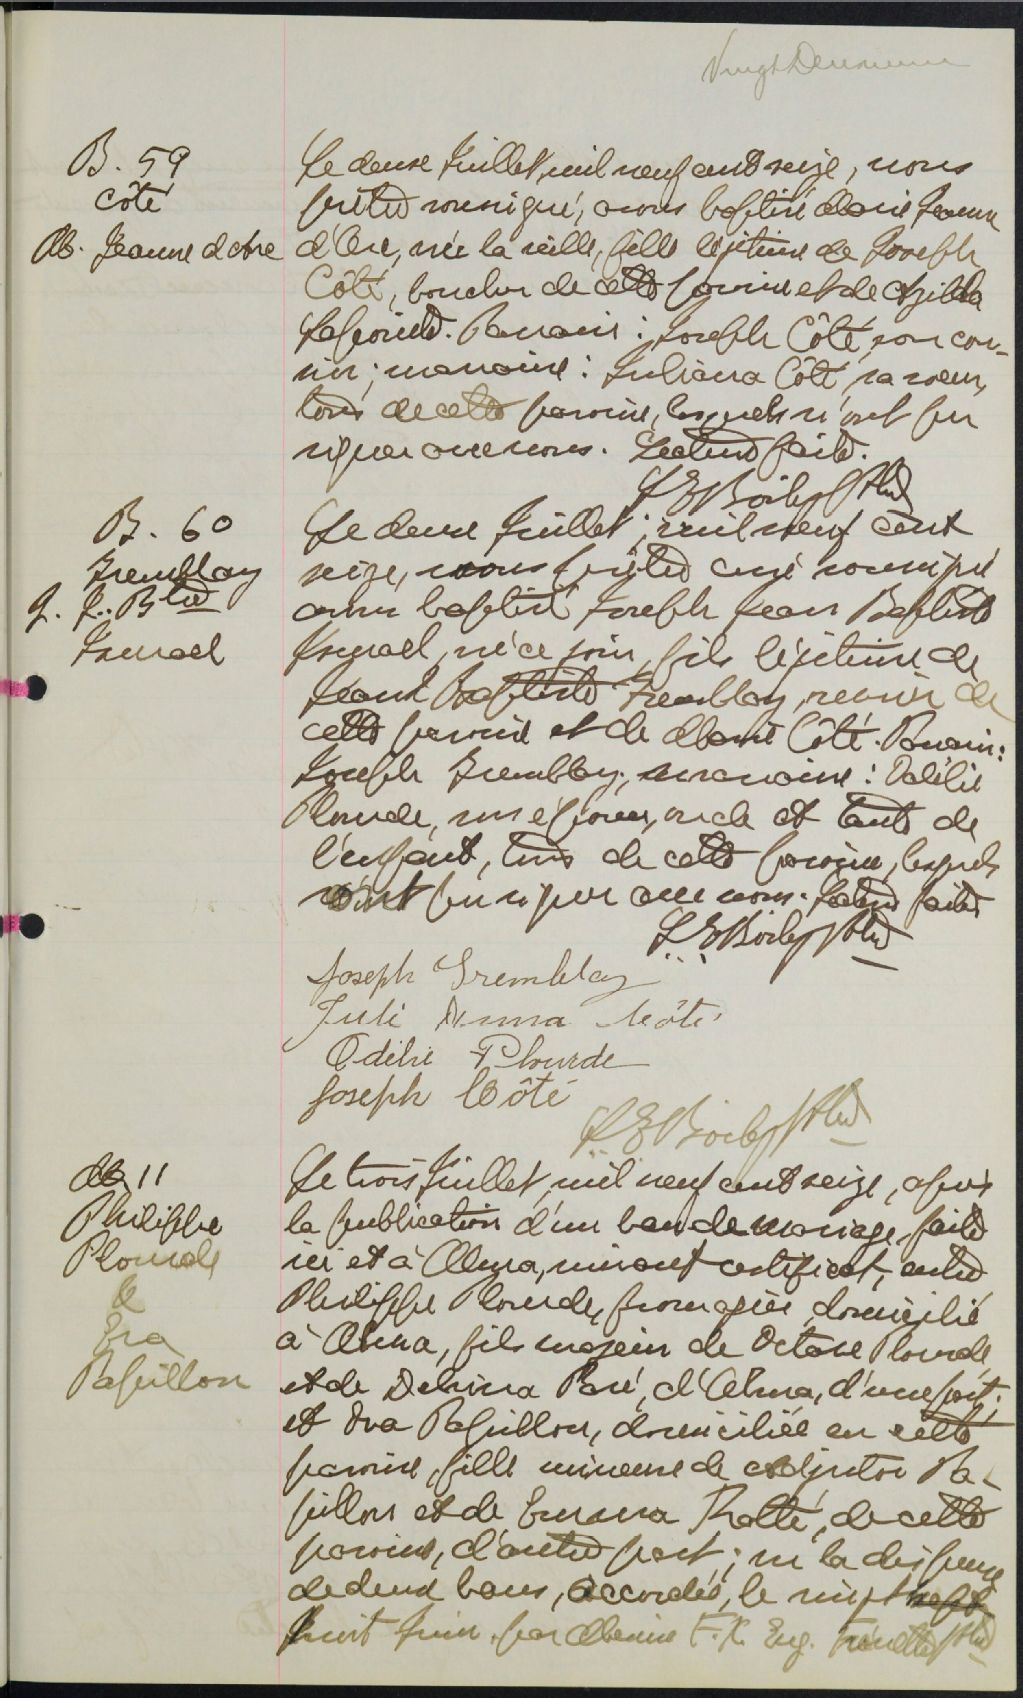 Vingt Deuxieme
B. 59
Côté
M. Jeanne d'Arc
Le deux Juillet, mil neuf cent seize, nous
prêtre soussigné, avons baptisé Marie Jeanne
d'Arc, née la veille, fille légitime de Joseph
Côté, boucher de cette paroisse et de Azilda
Lapointe. Parrain : Joseph Côté, son cou-
sin ; marraine : Juliana Côté, sa soeur,
tous de cette paroisse, lesquels n'ont pu
signer avec nous. Lecture faite.
L E Boily Ptre
B. 60
Tremblay
J. J. Bte
Ismael
Le deux Juillet, mil neuf cent
seize, nous prêtre curé soussigné
avons baptisé Joseph Jean Baptiste
Ismael, né ce jour, fils légitime de
Jean Baptiste Tremblay, de
cette paroisse et de Marie Côté. Parrain :
Joseph Tremblay, marraine : Odélie
Plourde, son épouse, oncle et tante de
l'enfant, tous de cette paroisse, lesquels
n'ont pu signer avec nous. Lecture faite
L E Boily Ptre
Joseph Tremblay
Juli Anna Côté
Odélie Plourde
Joseph Côté
L E Boily Ptre
M 11
Philippe
Plourde
&
Eva
Papillon
Le trois Juillet, mil neuf cent seize, après
la publication d'un ban de mariage, faite
ici et à Alma, suivant certificat, entre
Philippe Plourde, fromagier, domicilié
à Alma, fils majeur de Octave Plourde
et de Delvina Paré, d'Alma, d'une part ;
et Eva Papillon, domiciliée en cette
paroisse, fille mineure de Adjutor Pa-
pillon et de Emma Ratté, de cette
paroisse, d'autre part ; vu la dispense
de deux bans, accordée, le vingt sept
huit Juin, par F. X. Eug. Frenette Ptre